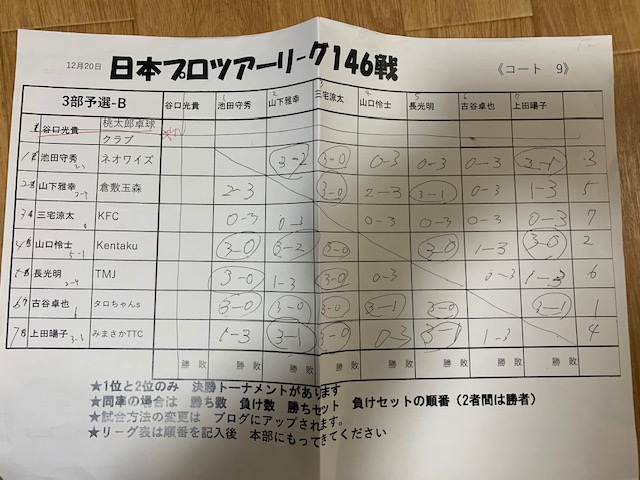 12月20日 日本プロツアーリーグ146戦 《コート 9》
3部予選-B 谷口光貴 池田守秀 山下雅幸 三宅涼太 山口怜士 長光明 古谷卓也 上田陽子
谷口光貴 桃太郎卓球クラブ
池田守秀 ネオワイズ 3-2 3-0 0-3 0-3 0-3 3-1 3
山下雅幸 倉敷玉森 2-3 3-0 2-3 3-1 0-3 1-3 5
三宅涼太 KFC 0-3 0-3 0-3 0-3 0-3 0-3 7
山口怜士 Kentaku 3-0 3-2 3-0 3-0 1-3 3-0 2
長光明 TMJ 3-0 1-3 3-0 0-3 0-3 1-3 6
古谷卓也 タロちゃんs 3-0 3-0 3-0 3-1 3-0 3-1 1
上田陽子 みまさかTTC 1-3 3-1 3-0 0-3 3-1 1-3 4
勝 敗 勝 敗 勝 敗 勝 敗 勝 敗 勝 敗 勝 敗 勝 敗
★1位と2位のみ 決勝トーナメントがあります
★同率の場合は 勝ち数 負け数 勝ちセット 負けセットの順番（2者間は勝者）
★試合方法の変更は ブログにアップされます。
★リーグ表は順番を記入後 本部にもってきてください